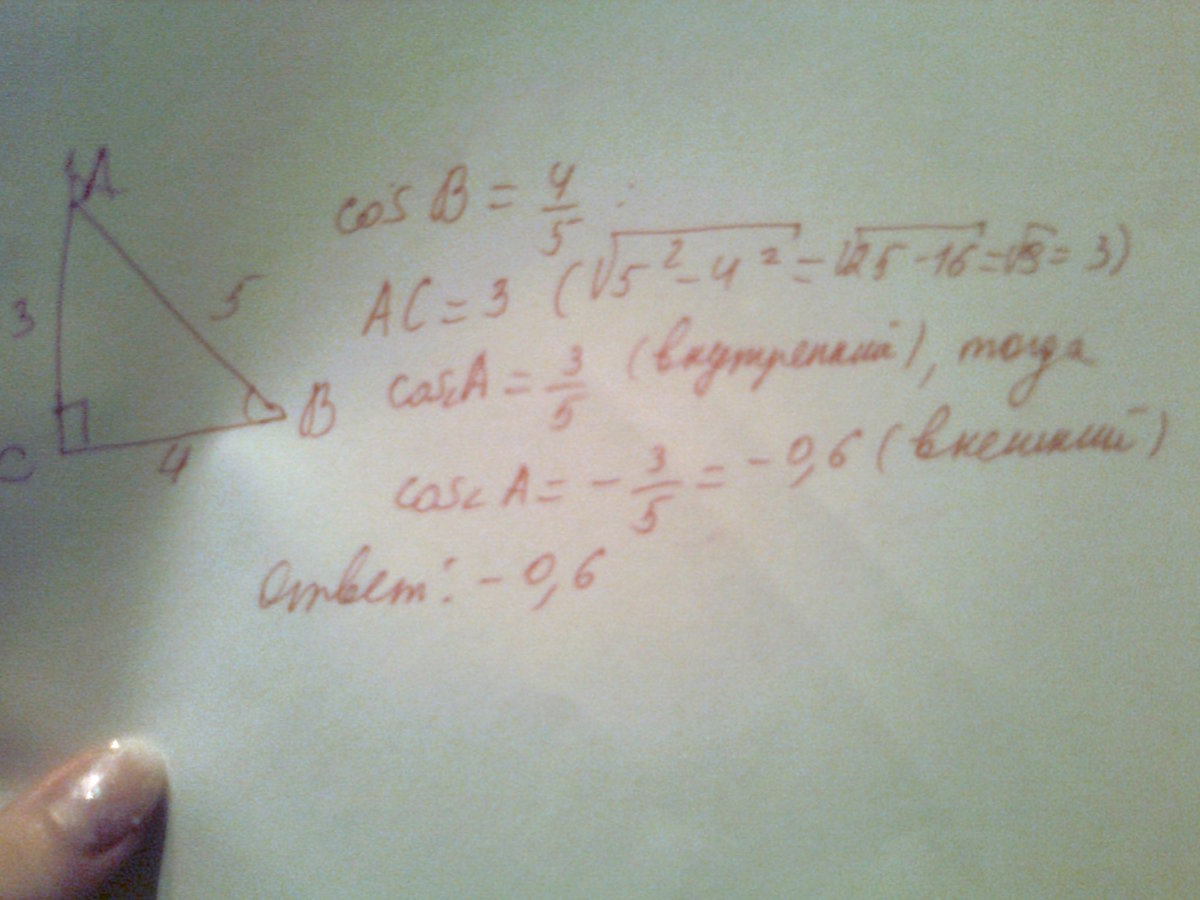 A
3
5
C
4
B
cos B = 4/5 :
AC = 3 (√5² - 4² = √25 - 16 = √9 = 3)
cos∠A = 3/5 (внутренний), тогда
cos∠A = - 3/5 = - 0,6 (внешний)
Ответ: - 0,6